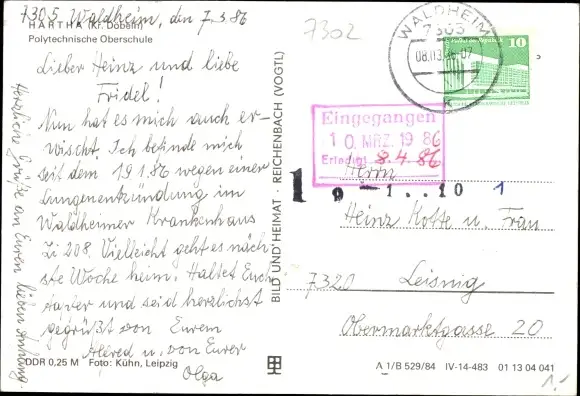 7305 Waldheim, den 7.3.86
HARTHA (Kr. Döbeln)
Polytechnische Oberschule
Lieber Heinz und liebe
Fridel!
Nun hat es mich auch er-
wischt. Ich befinde mich
seit dem 19.1.86 wegen einer
Lungenentzündung im
Waldheimer Krankenhaus
Zi 208. Vielleicht geht es näch-
ste Woche heim. Haltet Euch
tapfer und seid herzlichst
gegrüßt von Eurem
Alfred u. von Eurer
Olga
Herzliche Grüße an Euren lieben Anhang.
DDR 0,25 M Foto: Kühn, Leipzig
BILD UND HEIMAT · REICHENBACH (VOGTL)
7302
WALDHEIM
7305
08.03.86.07
K
10
Eingegangen
10. MRZ. 1986
Erledigt 8.4.86
1 9 - 1...10 1
Herrn
Heinz Kotte u. Frau
7320 Leisnig
Obermarktgasse 20
A 1/B 529/84 IV-14-483 01 13 04 041
1,-